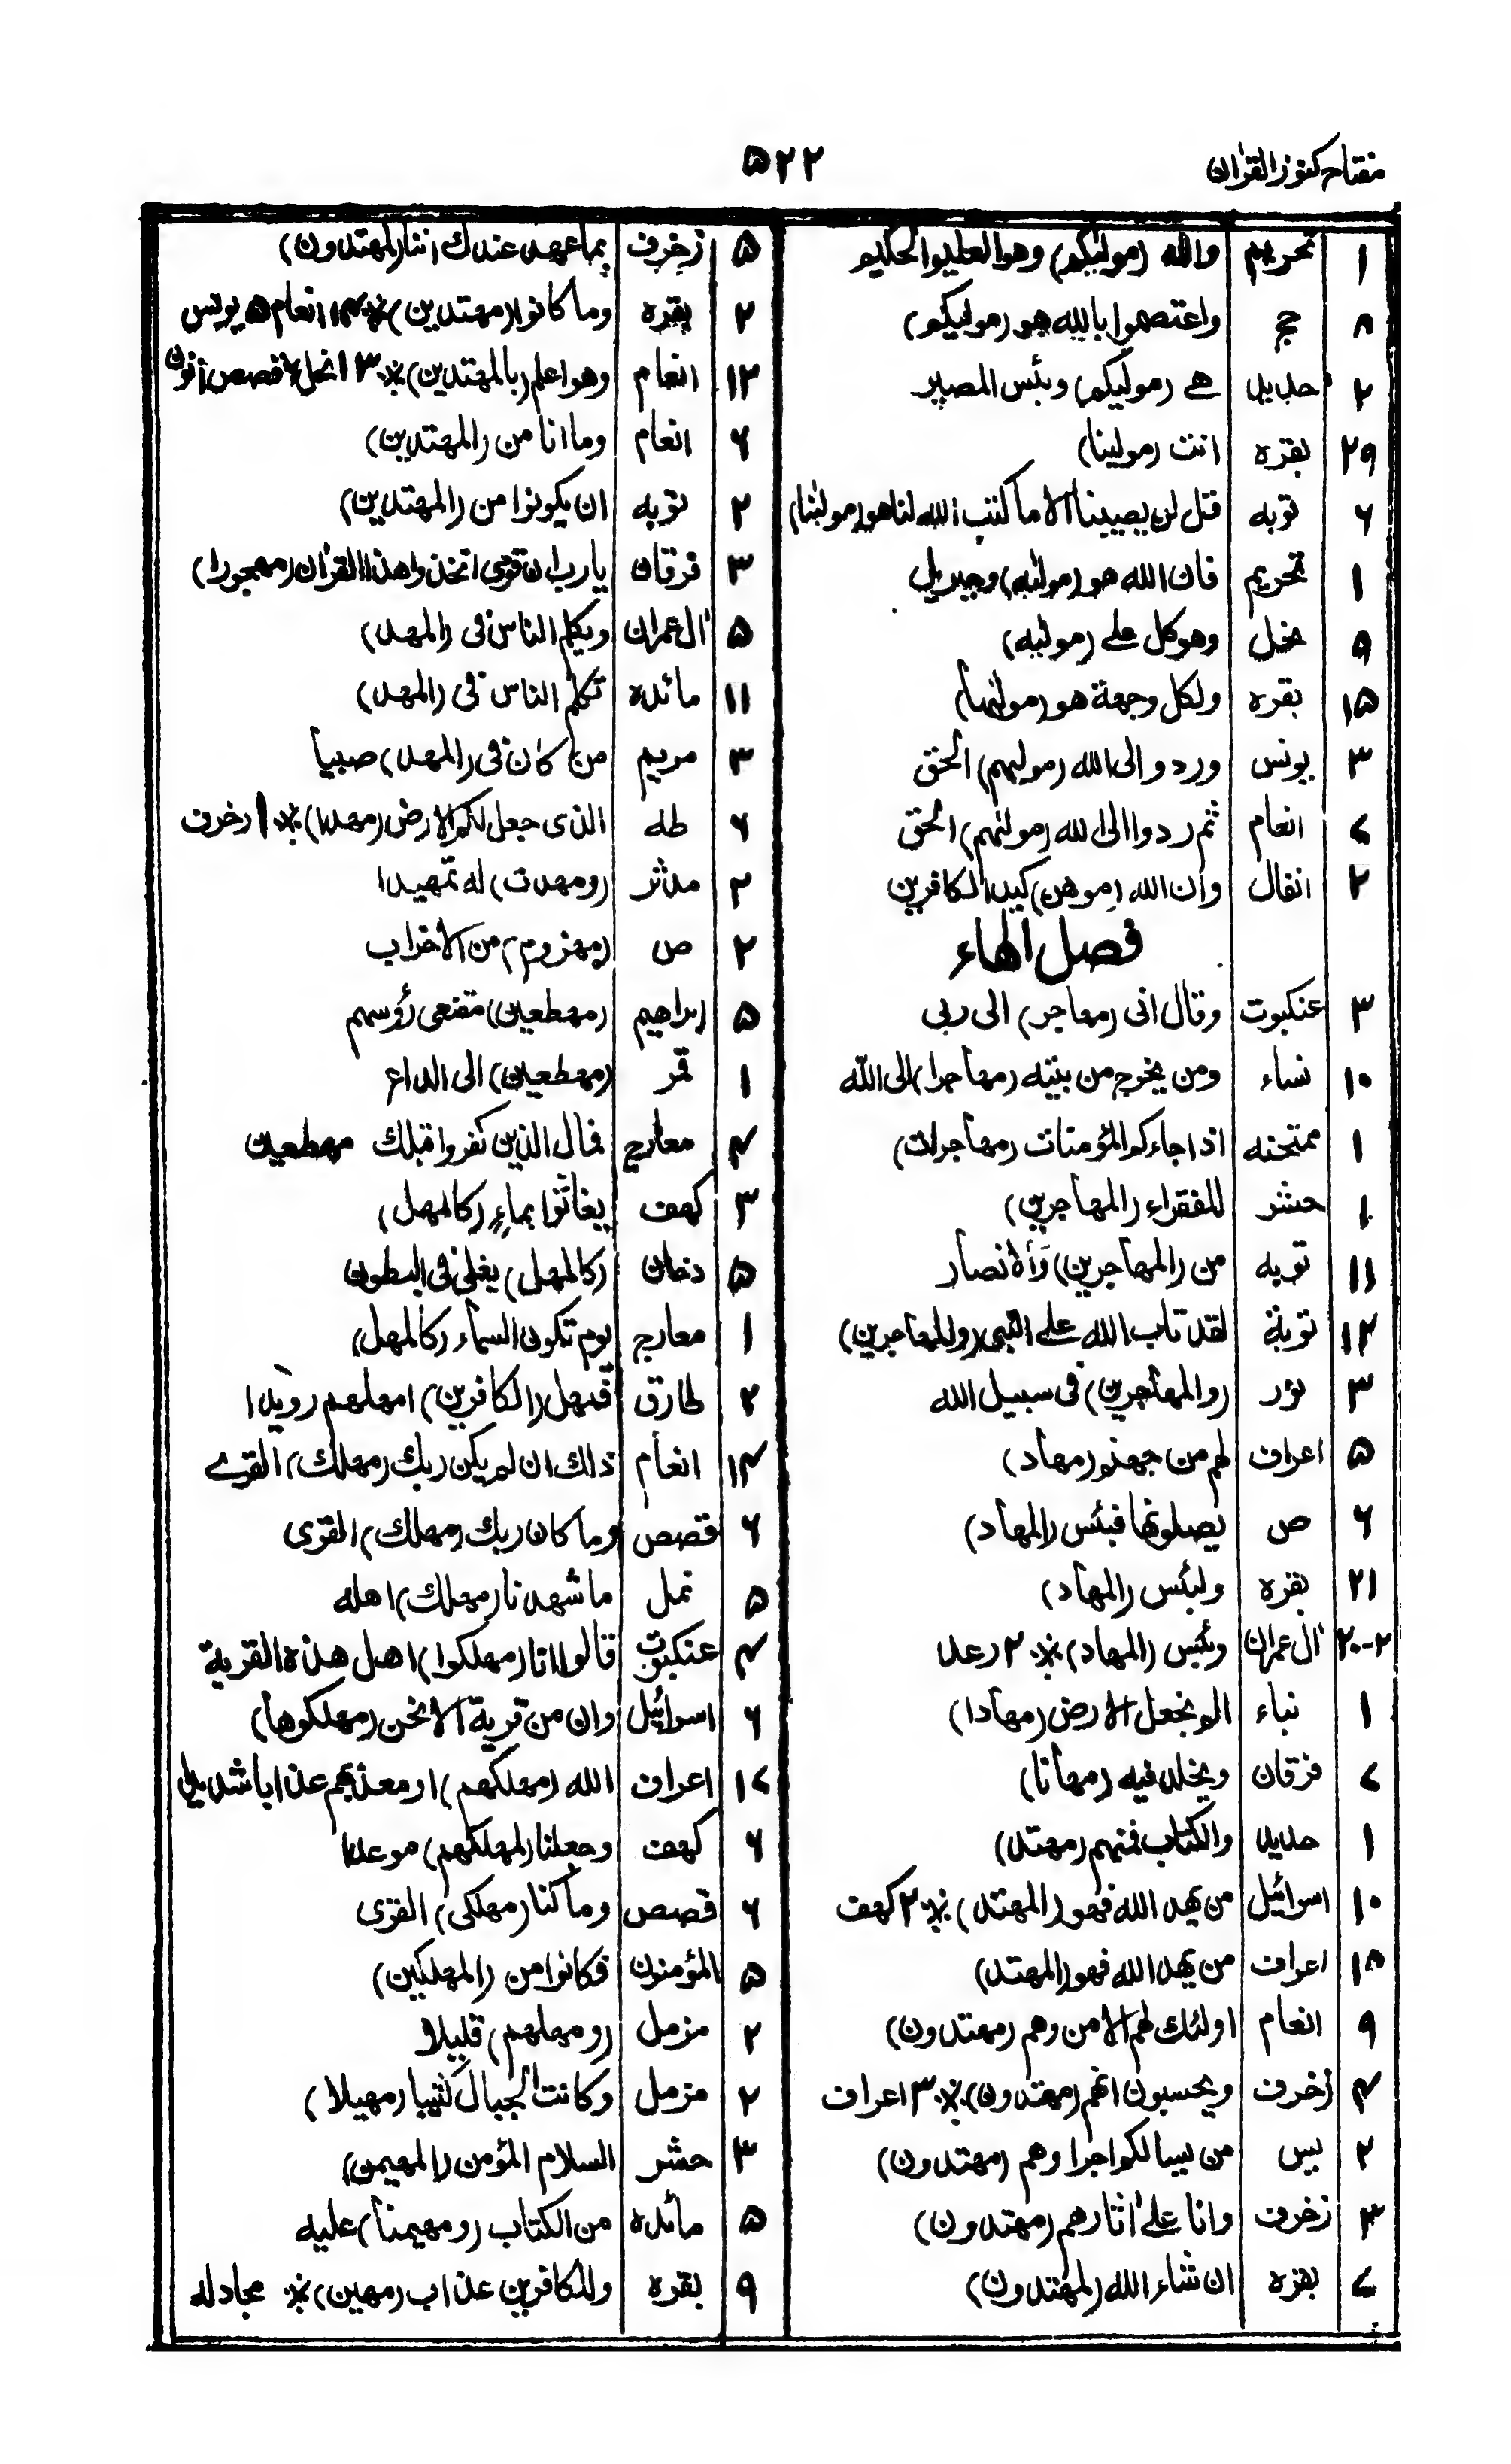 مفتاح کنوز القرٰان
۵۲۲
۱ تحریم والله (مولٰیکم) وهو العلیم الحکیم
۸ حج واعتصموا بالله هو (مولیکم)
۲ حدید هے (مولیکم) وبئس المصیر
۲۹ بقره انت (مولینا)
۶ توبه قل لن یصیبنا الا ما کتب الله لنا هو (مولٰنا)
۱ تحریم فان الله هو (مولٰیه) وجبریل
۹ نحل وهو کل علے (مولٰیه)
۱۵ بقره ولکل وجهة هو (مولیها)
۳ یونس وردوا الی الله (مولیهم) الحق
۷ انعام ثم ردوا الی الله (مولٰیهم) الحق
۲ انفال وان الله (موهن) کید الکافرین
فصل الهاء
۳ عنکبوت وقال انی (مهاجر) الی ربی
۱۰ نساء ومن یخرج من بیته (مهاجرا) الی الله
۱ ممتحنه اذا جاءکم المؤمنات (مهاجرات)
۱ حشر للفقراء (المهاجرین)
۱۱ توبه من (المهاجرین) والانصار
۱۲ توبة لقد تاب الله علے النبی (والمهاجرین)
۳ نور (والمهاجرین) فی سبیل الله
۵ اعراف لهم من جهنم (مهاد)
۶ ص یصلونها فبئس (المهاد)
۲۱ بقره ولبئس (المهاد)
۲۰-۲ اٰل عمران وبئس (المهاد) ※ ۲ رعد
۱ نباء الم نجعل الارض (مهادا)
۷ فرقان ویخلد فیه (مهانا)
۱ حدید والکتاب فمنهم (مهتد)
۱۰ اسرائیل من یهد الله فهو (المهتد) ※ ۲ کهف
۱۸ اعراف من یهد الله فهو (المهتد)
۹ انعام اولئک لهم الامن وهم (مهتدون)
۴ زخرف ویحسبون انهم (مهتدون) ※ ۳ اعراف
۲ یس من لیسالکم اجرا وهم (مهتدون)
۳ زخرف وانا علے اٰثارهم (مهتدون)
۷ بقره ان شاء الله (لمهتدون)
۵ زخرف بما عهد عندک اننا (لمهتدون)
۲ بقره وما کانوا (مهتدین) ※ ۱۶ انعام ۵ یونس
۱۳ انعام وهو اعلم (بالمهتدین) ※ ۳ نحل ۶ قصص
۶ انعام وما انا من (المهتدین)
۲ توبه ان یکونوا من (المهتدین)
۳ فرقان یارب ان قومی اتخذوا هذا القرٰان (مهجورا)
۵ اٰل عمران ویکلم الناس فی (المهد)
۱۱ مائده تکلم الناس فی (المهد)
۳ مریم من کان فی (المهد) صبیا
۶ طه الذی جعل لکم الارض (مهدا) ※ ۱ زخرف
۲ مدثر (ومهدت) له تمهیدا
۲ ص (مهزوم) من الاحزاب
۵ ابراهیم (مهطعین) مقنعی رؤسهم
۱ قمر (مهطعین) الی الداع
۴ معارج فمال الذین کفروا قبلک مهطعین
۳ کهف یغاثوا بماءٍ (کالمهل)
۵ دخان (کالمهل) یغلی فی البطون
۱ معارج یوم تکون السماء (کالمهل)
۲ طارق فمهل (الکافرین) امهلهم رویدا
۱۴ انعام ذلک ان لم یکن ربک (مهلک) القرے
۶ قصص وما کان ربک (مهلک) القری
۵ نمل ما شهدنا (مهلک) اهله
۴ عنکبوت قالوا انا (مهلکوا) اهل هذه القریة
۶ اسرائیل وان من قریة الا نحن (مهلکوها)
۱۷ اعراف الله (مهلکهم) او معذبهم عذابا شدیدا
۶ کهف وجعلنا (لمهلکهم) موعدا
۶ قصص وما کنا (مهلکی) القری
۵ المؤمنون فکانوا من (المهلکین)
۲ مزمل (ومهلهم) قلیلا
۲ مزمل وکانت الجبال کثیبا (مهیلا)
۳ حشر السلام المؤمن (المهیمن)
۵ مائده من الکتاب (ومهیمنا) علیه
۹ بقره وللکافرین عذاب (مهین) ※ مجادله